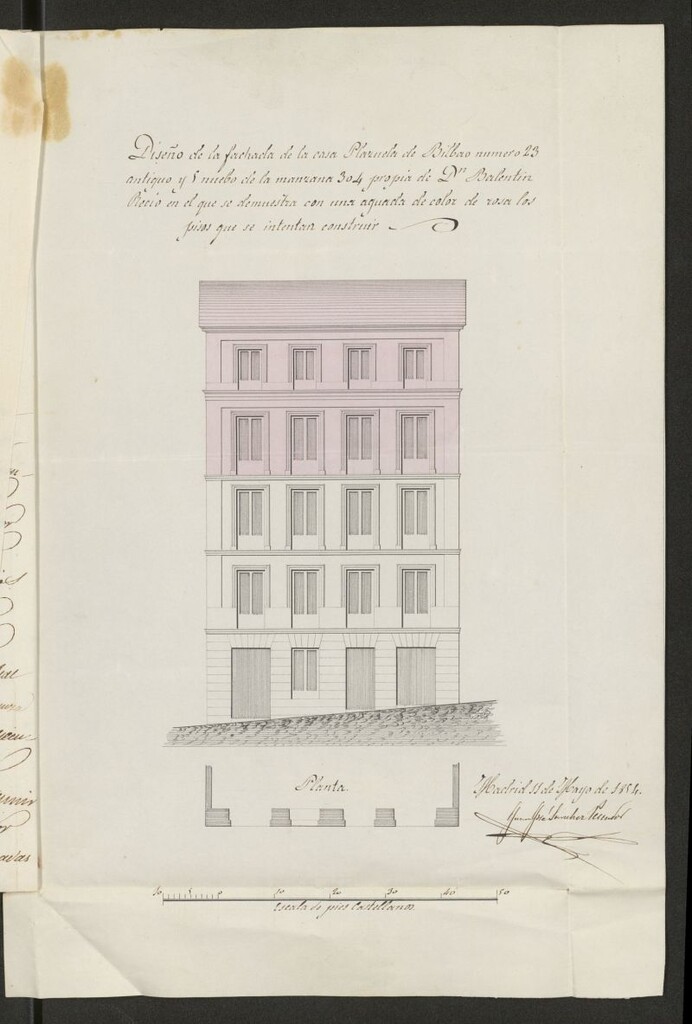 Diseño de la fachada de la casa Plazuela de Bilbao numero 23
antiguo y 1 nuebo de la manzana 304 propia de Dn Balentin
Recio en el que se demuestra con una aguada de color de rosa los
pisos que se intentan construir
Planta
Madrid 11 de Mayo de 1854.
Juan José Sanchez Pescador
10 5 0 10 20 30 40 50
Escala de pies Castellanos